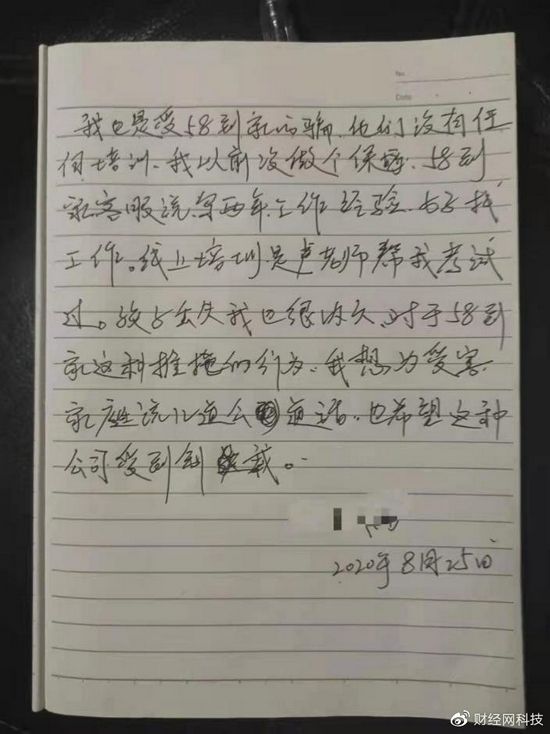 No.
Date
我也是受58到家的骗，他们没有任
何培训，我以前没做个保姆，58到
家客服说，写两年工作经验，好找
工作。线上培训是卢老师帮我考试
过。孩子丢失我也很次失，对于58到
家这种推掩的行为，我想为受害
家庭说几道公道话，也希望这种
公司受到制裁。
2020年8月25日
财经网科技